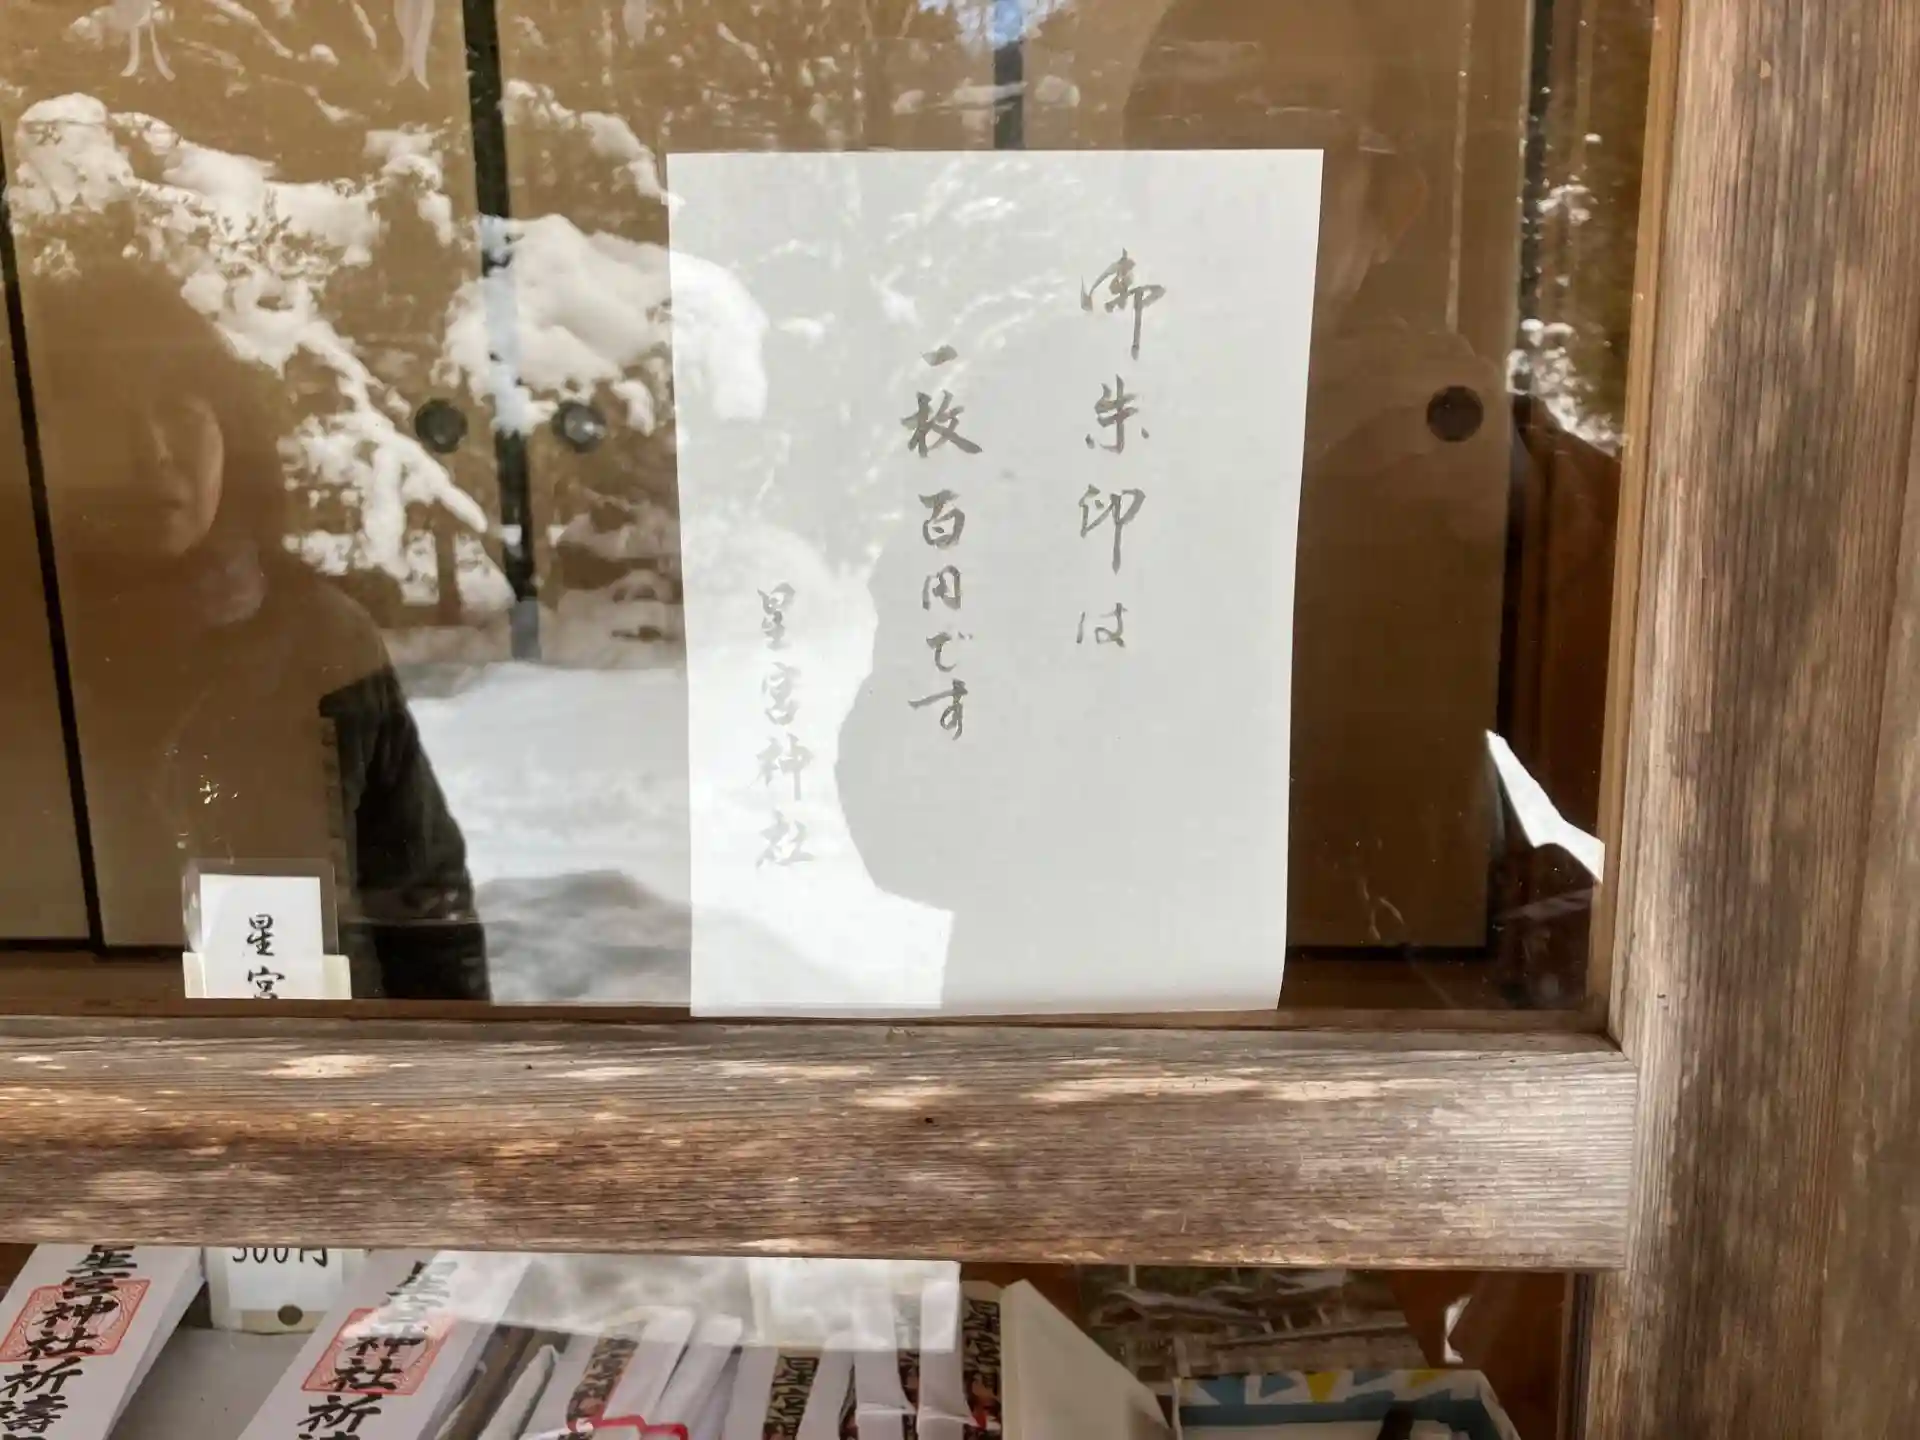 御朱印は
一枚百円です
星宮神社
星宮
300円
星宮神社祈祷
星宮神社祈祷